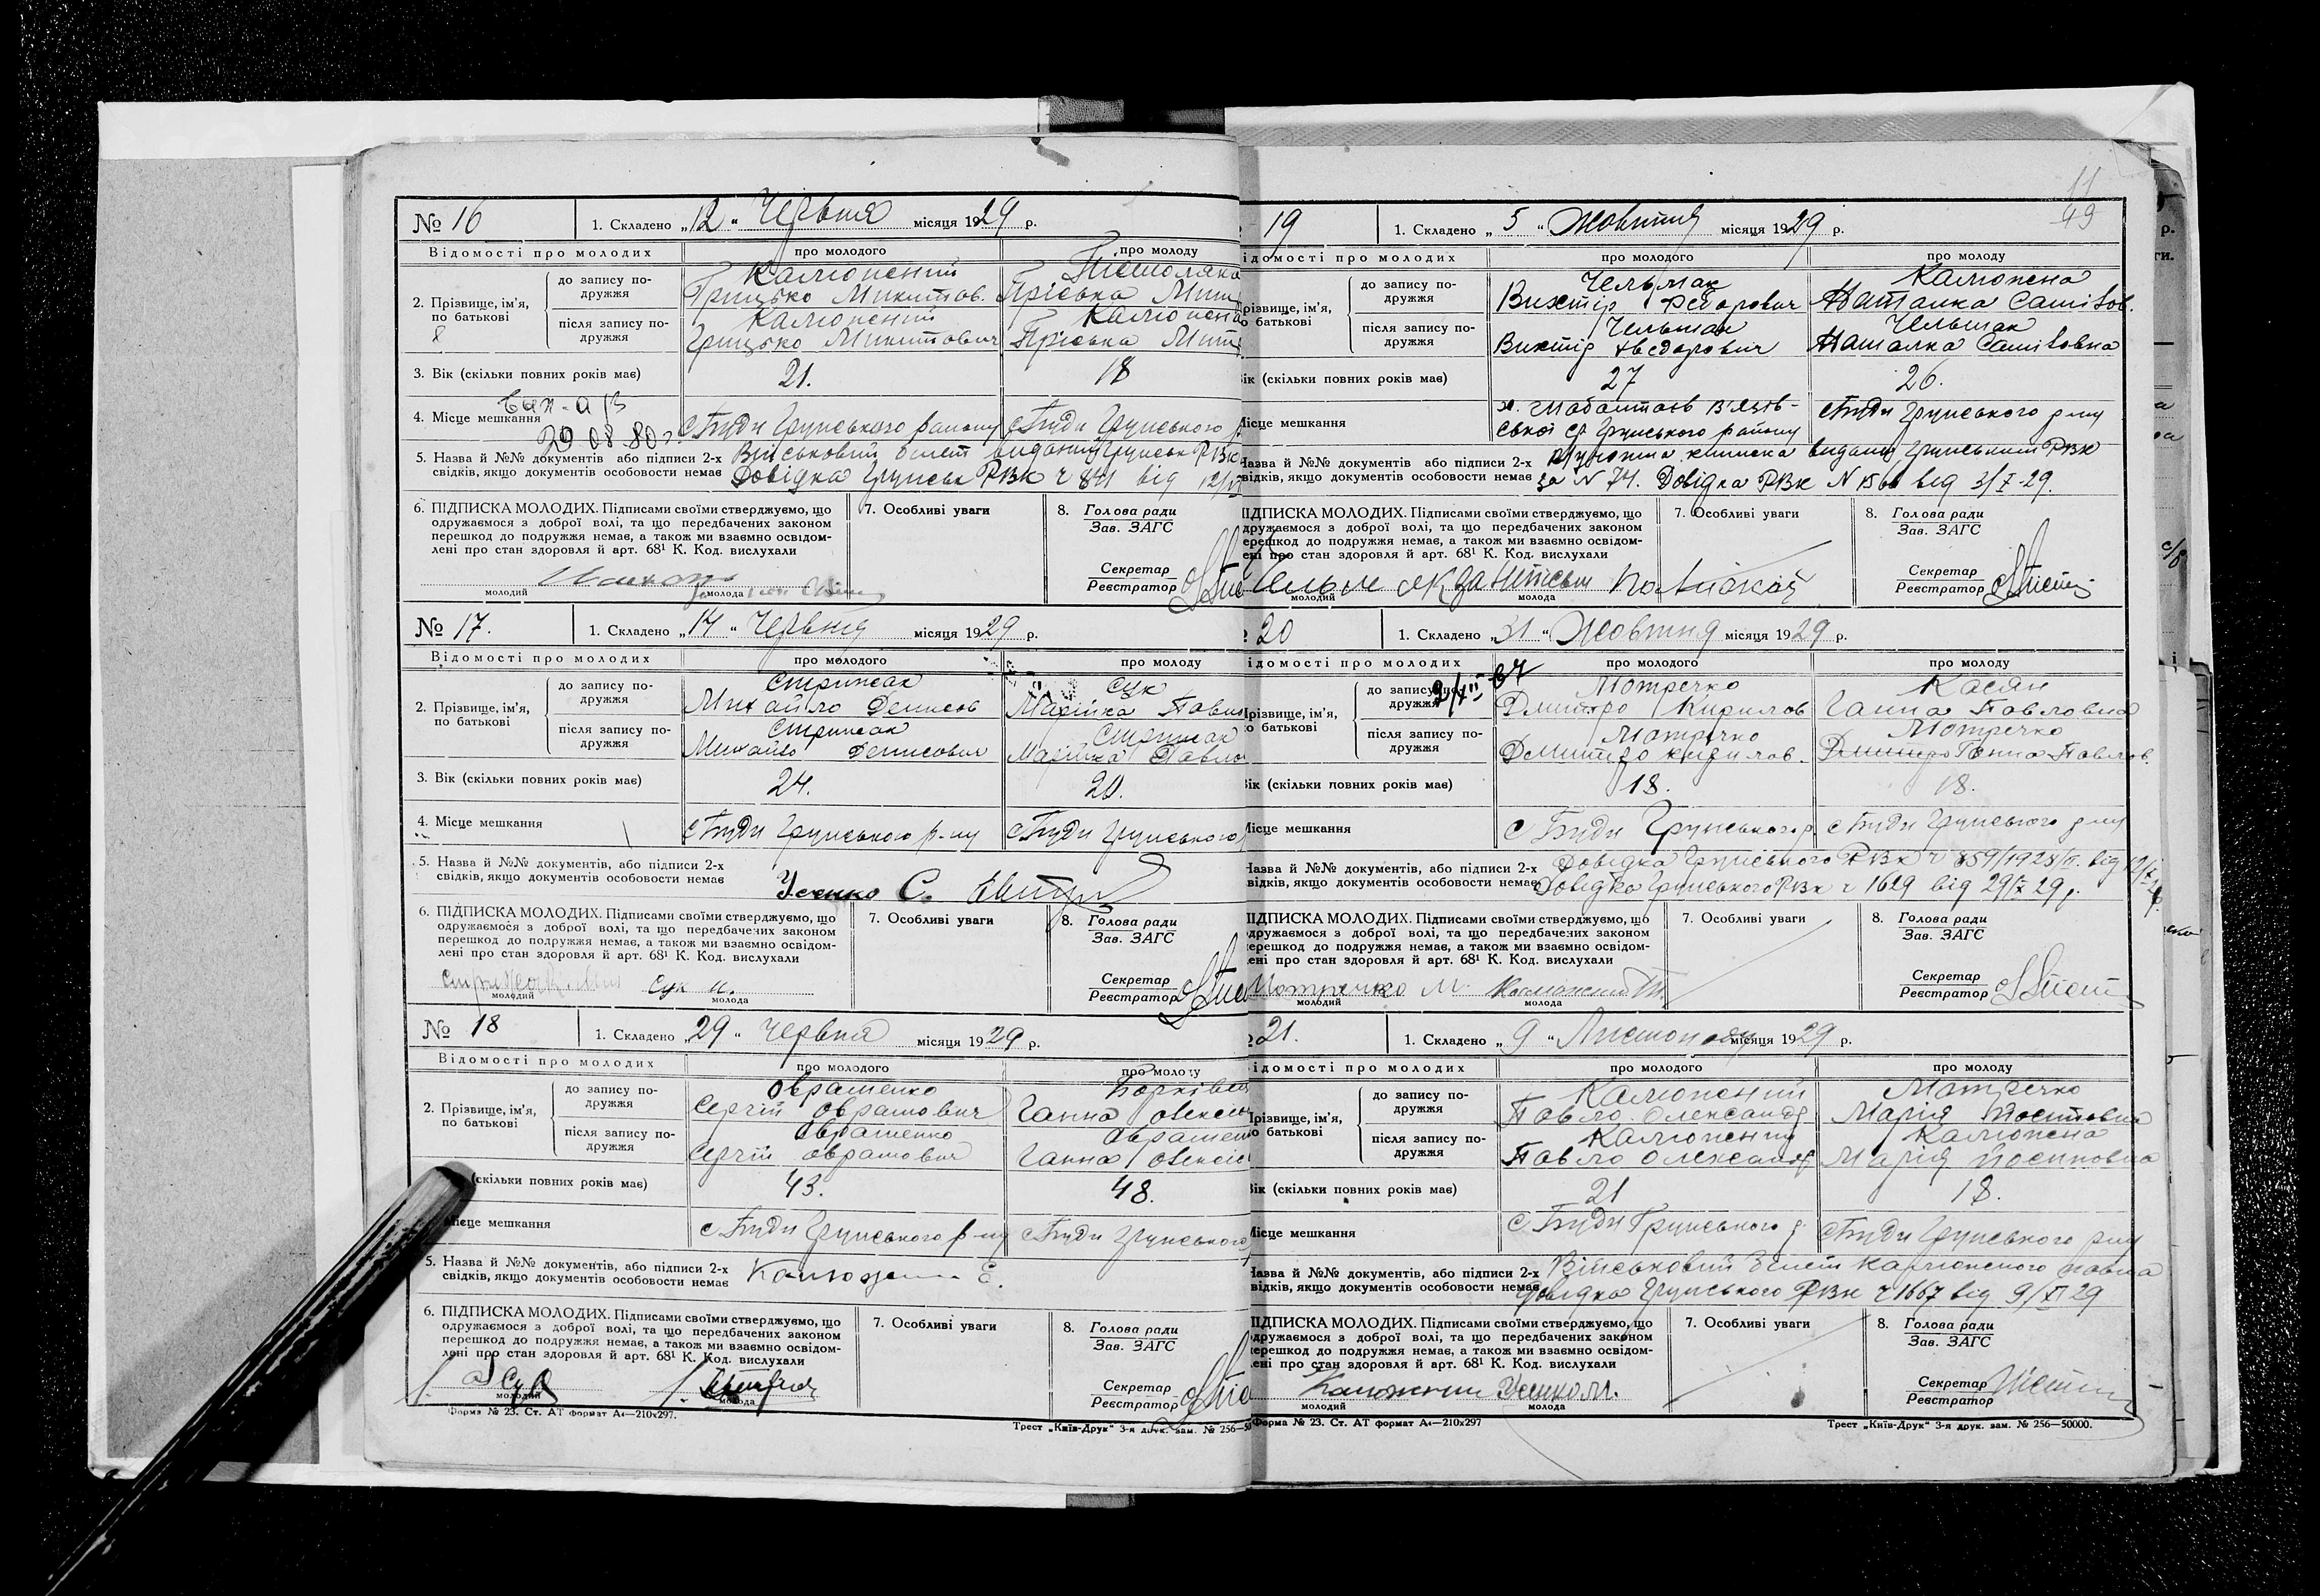 № 16
1. Складено „12" Червня місяця 1929 р.
Відомості про молодих
про молодого
про молоду
2. Прізвище, ім'я, по батькові
8
до запису по-
дружжя
Калюжний
Грицько Микитов.
Пріська
після запису по-
дружжя
Калюжний
Грицько Микитович
Калюжна
Пріська
3. Вік (скільки повних років має)
21.
18
4. Місце мешкання
29 08 80 г.
с Буди Грунського району
с Буди Грунського
5. Назва й №№ документів або підписи 2-х
свідків, якщо документів особовости немає
Військовий білет виданий Грунськ РВК
Довідка Грунськ РВК ч 841 від 12/VI
6. ПІДПИСКА МОЛОДИХ. Підписами своїми стверджуємо, що
одружаємося з доброї волі, та що передбачених законом
перешкод до подружжя немає, а також ми взаємно освідом-
лені про стан здоровля й арт. 68¹ К. Код. вислухали
молодий
молода
7. Особливі уваги
8. Голова ради
Зав. ЗАГС
Секретар
Реєстратор
№ 17.
1. Складено „14" Червня місяця 1929 р.
Відомості про молодих
про молодого
про молоду
2. Прізвище, ім'я,
по батькові
до запису по-
дружжя
Стрижак
Михайло Денисов
Сук
Марійка Павло
після запису по-
дружжя
Стрижак
Михайло Денисович
Стрижак
Марійка Павло
3. Вік (скільки повних років має)
24.
20.
4. Місце мешкання
с Буди Грунського р-ну
с Буди Грунського
5. Назва й №№ документів, або підписи 2-х
свідків, якщо документів особовости немає
Усенко С.
6. ПІДПИСКА МОЛОДИХ. Підписами своїми стверджуємо, що
одружаємося з доброї волі, та що передбачених законом
перешкод до подружжя немає, а також ми взаємно освідом-
лені про стан здоровля й арт. 68¹ К. Код. вислухали
Сук М.
молодий
молода
7. Особливі уваги
8. Голова ради
Зав. ЗАГС
Секретар
Реєстратор
№ 18
1. Складено „29" Червня місяця 1929 р.
Відомості про молодих
про молодого
про молоду
2. Прізвище, ім'я,
по батькові
до запису по-
дружжя
Овраменко
Сергій Оврамович
Ганна Олексі
після запису по-
дружжя
Овраменко
Сергій Оврамович
Оврамен
Ганна Олексі
(скільки повних років має)
43.
48.
Місце мешкання
с Буди Грунського р-ну
с Буди Грунського
5. Назва й №№ документів, або підписи 2-х
свідків, якщо документів особовости немає
6. ПІДПИСКА МОЛОДИХ. Підписами своїми стверджуємо, що
одружаємося з доброї волі, та що передбачених законом
перешкод до подружжя немає, а також ми взаємно освідом-
лені про стан здоровля й арт. 68¹ К. Код. вислухали
молодий
молода
7. Особливі уваги
8. Голова ради
Зав. ЗАГС
Секретар
Реєстратор
Форма № 23. Ст. АТ формат А4—210x297.
Трест „Київ-Друк" 3-я друк. зам. № 256—50
11
49
19
1. Складено „5" Жовтня місяця 1929 р.
ідомості про молодих
про молодого
про молоду
різвище, ім'я,
о батькові
до запису по-
дружжя
Чельмак
Вихтір Федорович
Калюжна
Наталка Самійлов.
після запису по-
дружжя
Чельмак
Вихтір Федорович
Чельмак
Наталка Самійловна
ік (скільки повних років має)
27
26.
Місце мешкання
х. Шабалтаїв В'язів-
ської с/р Грунського району
с Буди Грунського р-ну
Назва й №№ документів або підписи 2-х
відків, якщо документів особовости немає
книжка видана Грунським РВК
за N 74. Довідка РВК N 1566 від 3/X-29.
ІДПИСКА МОЛОДИХ. Підписами своїми стверджуємо, що
дружаємося з доброї волі, та що передбачених законом
ерешкод до подружжя немає, а також ми взаємно освідом-
ені про стан здоровля й арт. 68¹ К. Код. вислухали
молодий
молода
7. Особливі уваги
8. Голова ради
Зав. ЗАГС
Секретар
Реєстратор
20
1. Складено „31" Жовтня місяця 1929 р.
ідомості про молодих
про молодого
про молоду
різвище, ім'я,
о батькові
до запису по-
дружжя
Мотречко
Дмитро Кирилов
Касян
Ганна Павловна
після запису по-
дружжя
Мотречко
Дмитро Кирилов.
Мотречко
Дмитро Ганна Павлов.
ік (скільки повних років має)
18.
18.
Місце мешкання
с Буди Грунського р.
с Буди Грунського р-ну
Назва й №№ документів, або підписи 2-х
відків, якщо документів особовости немає
Довідка Грунського РВК ч 859/1928/ від 19/X
Довідка Грунського РВК ч 1629 від 29/X 29 р.
ІДПИСКА МОЛОДИХ. Підписами своїми стверджуємо, що
дружаємося з доброї волі, та що передбачених законом
ерешкод до подружжя немає, а також ми взаємно освідом-
ені про стан здоровля й арт. 68¹ К. Код. вислухали
молодий
молода
7. Особливі уваги
8. Голова ради
Зав. ЗАГС
Секретар
Реєстратор
21.
1. Складено „9" Листопаду місяця 1929 р.
ідомості про молодих
про молодого
про молоду
різвище, ім'я,
о батькові
до запису по-
дружжя
Калюжний
Павло Олександр
Мотречко
Марія Йосиповна
після запису по-
дружжя
Калюжний
Павло Олександр
Калюжна
Марія Йосиповна
ік (скільки повних років має)
21
18.
Місце мешкання
с Буди Грунського р
с Буди Грунського р-ну
Назва й №№ документів, або підписи 2-х
відків, якщо документів особовости немає
Військовий білет Калюжного Павла
Довідка Грунського РВК ч 1667 від 9/XI 29
ІДПИСКА МОЛОДИХ. Підписами своїми стверджуємо, що
дружаємося з доброї волі, та що передбачених законом
ерешкод до подружжя немає, а також ми взаємно освідом-
ені про стан здоровля й арт. 68¹ К. Код. вислухали
Калюжний Усенко М.
молодий
молода
7. Особливі уваги
8. Голова ради
Зав. ЗАГС
Секретар
Реєстратор
Форма № 23. Ст. АТ формат А4—210x297
Трест „Київ-Друк" 3-я друк. зам. № 256—50000.